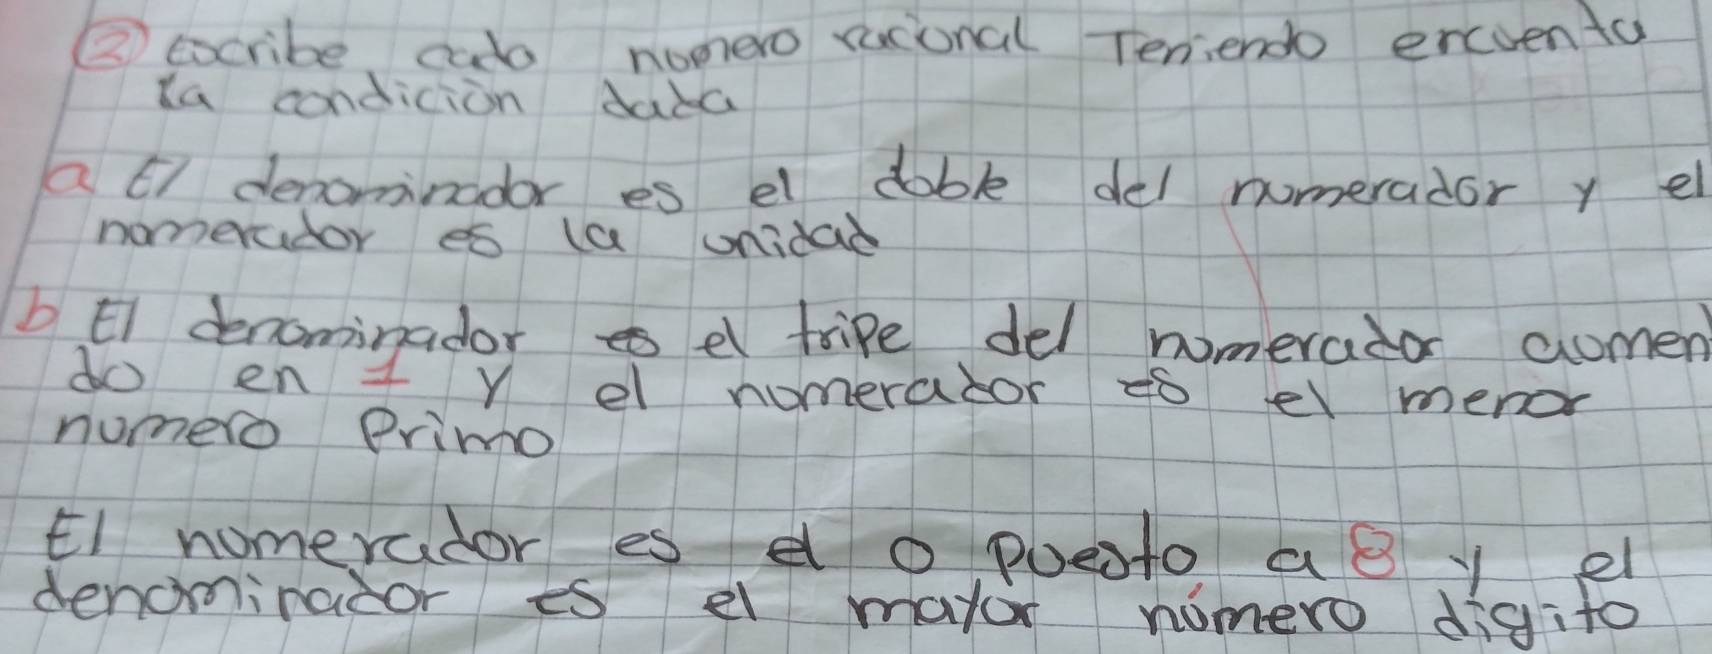 ② escribe cada numero racional Teniendo encuenta
la condición dada
a El denominador es el doble del numerador y el
numerador es la unidad
b El denominador es el tripe del numerador aumen
do en 1 y el numerador es el menor
numero Primo
El numerador es el o puesto a 8 y el
denominador es el mayor número digito